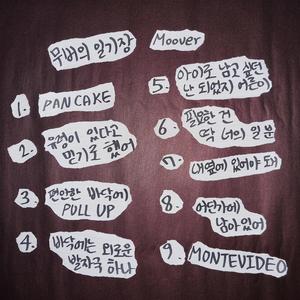 무버의 일기장
Moover
1. PANCAKE
2. 유령이 있다고
믿기로 했어
3. 편안한 바닥에
PULL UP
4. 바닥에는 외로운
발자국 하나
5. 아이로 남고 싶던
난 되었지 어른이
6. 필요한 건
딱 너의 일분
7. 내 옆에 있어야 돼
8. 어딘가에
남아있어
9. MONTEVIDEO